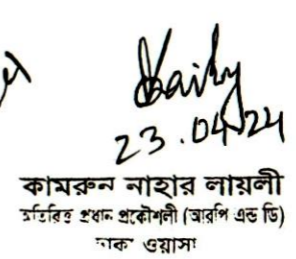 23.04.24
কামরুন নাহার লায়লী
অতিরিক্ত প্রধান প্রকৌশলী (আরপি এন্ড ডি)
ঢাকা ওয়াসা